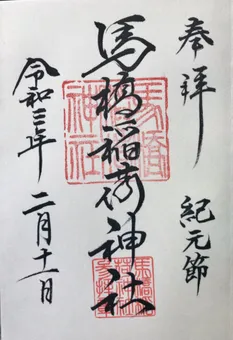 奉拝 紀元節
馬橋稲荷神社
令和三年 二月十一日
馬橋
神社